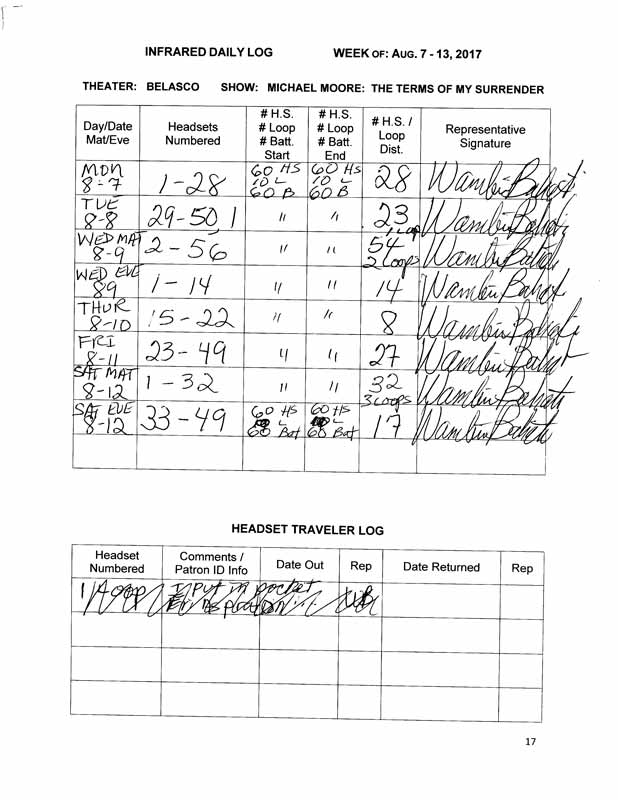 INFRARED DAILY LOG WEEK OF: AUG. 7 - 13, 2017
THEATER: BELASCO SHOW: MICHAEL MOORE: THE TERMS OF MY SURRENDER
Day/Date Mat/Eve Headsets Numbered # H.S. # Loop # Batt. Start # H.S. # Loop # Batt. End # H.S. / Loop Dist. Representative Signature
MON 8-7 1-28 60 HS 10 L 60 B 60 HS 10 L 60 B 28 Wambui Bahati
TUE 8-8 29-50 1 " " 23 1 Loop Wambui Bahati
WED MAT 8-9 2-56 " " 54 2 Loops Wambui Bahati
WED EVE 89 1-14 " " 14 Wambui Bahati
THUR 8-10 15-22 " " 8 Wambui Bahati
FRI 8-11 23-49 " " 27 Wambui Bahati
SAT MAT 8-12 1-32 " " 32 3 Loops Wambui Bahati
SAT EVE 8-12 33-49 60 HS L 60 Bat 60 HS L 60 Bat 17 Wambui Bahati
HEADSET TRAVELER LOG
Headset Numbered Comments / Patron ID Info Date Out Rep Date Returned Rep
1 Loop I put in pocket WB
17